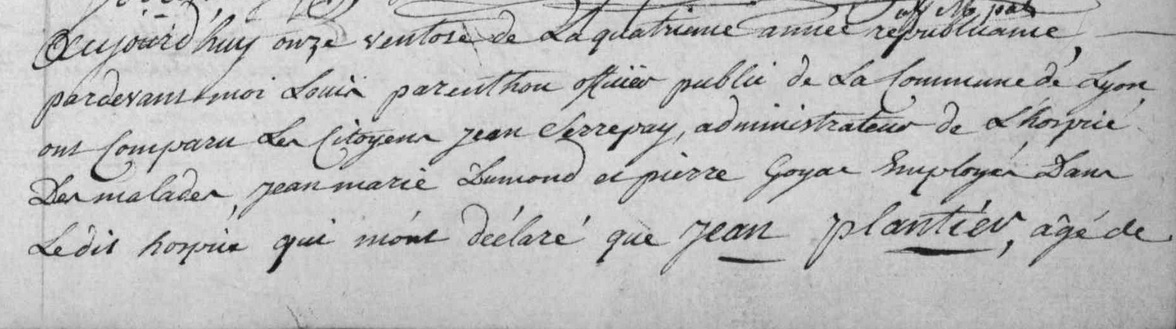 Aujourd'huy onze ventose de La quatrieme année republicaine,
pardevant moi Louis parenthou officier public de La Commune de Lyon
ont Comparu Les Citoyens jean Serrepay, administrateur de L'hospice
Des malades, jean marie Dumond et pierre Goyar Employés Dans
Le dit hospice qui m'ont déclaré que jean plantier, âgé de